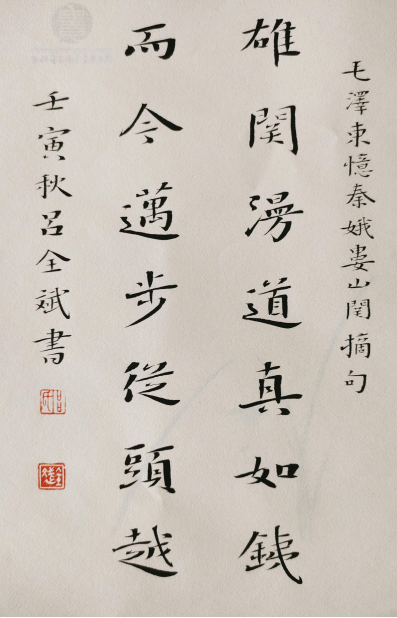 毛澤東憶秦娥婁山関摘句
雄関漫道真如鉄
而今邁步從頭越
壬寅秋吕全斌書